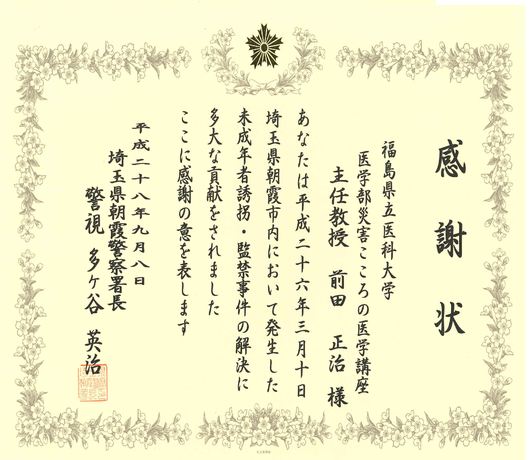 感謝状
福島県立医科大学
医学部災害こころの医学講座
主任教授 前田 正治 様
あなたは平成二十六年三月十日
埼玉県朝霞市内において発生した
未成年者誘拐・監禁事件の解決に
多大な貢献をされました
ここに感謝の意を表します
平成二十八年九月八日
埼玉県朝霞警察署長
警視 多ケ谷 英治